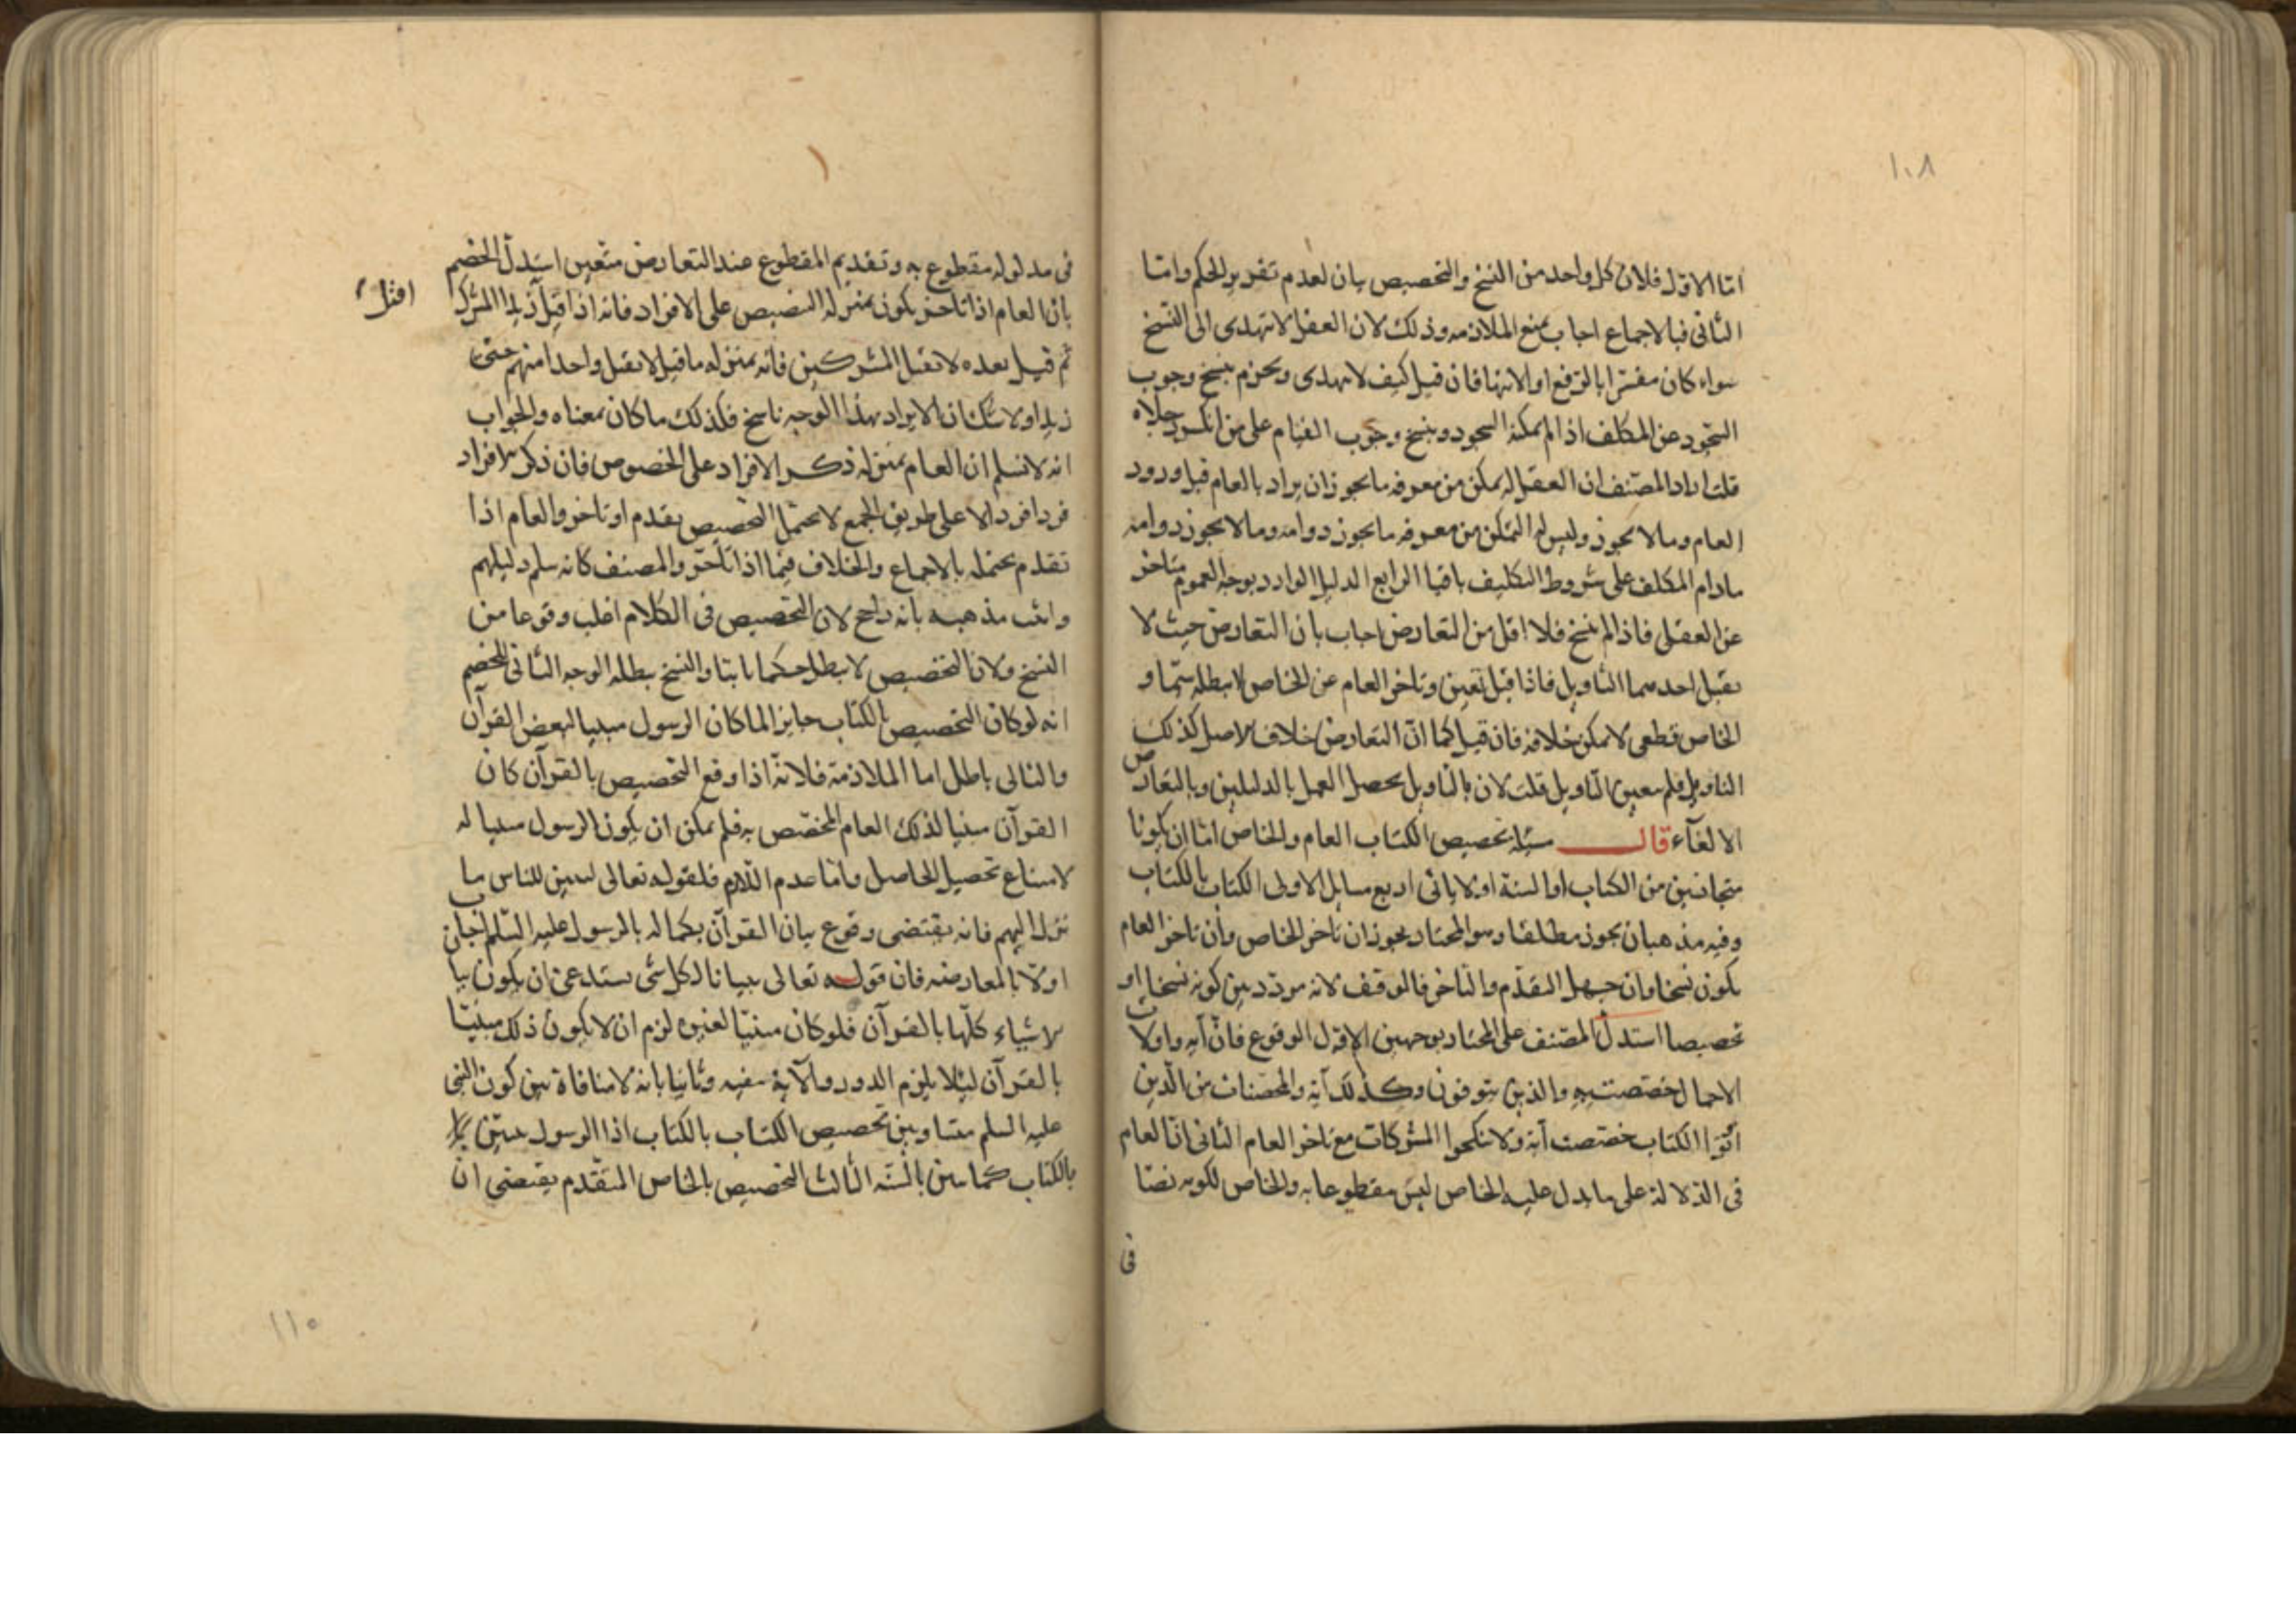 ١٠٨
اما الاول فلان كل واحد من النسخ والتخصيص بيان لعدم تقرير الحكم واما
الثانى فبالاجماع اجاب بمنع الملازمه وذلك لان العقل لا يهتدى الى النسخ
سواء كان مفسرا بالرفع او الانتها فان قيل كيف لا يهتدى ويجزم بنسخ وجوب
السجود عن المكلف اذا لم يمكنه السجود وبنسخ وجوب القيام على من انكسر رجلاه
قلت اراد المصنف ان العقل له يمكن من معرفه ما يجوز ان يراد بالعام قبل ورود
العام وما لا يجوز وليس له التمكن من معرفه ما يجوز دوامه وما لا يجوز دوامه
مادام المكلف على شروط التكليف باقيا الرابع الدليل الوارد بوجه العموم متاخر
عن العقلى فاذا لم ينسخ فلا اقل من التعارض اجاب بان التعارض حيث لا
يقبل احدهما التاويل فاذا قبل تعين وتاخر العام عن الخاص لا يبطله سيما و
الخاص قطعى لا يمكن خلافه فان قيل كما ان التعارض خلاف الاصل كذلك
التاويل فلم يتعين التاويل قلت لان بالتاويل يحصل العمل بالدليلين وبالتعارض
الالغآء قال مسئلة تخصيص الكتاب العام والخاص اما ان يكونا
متجانسين من الكتاب او السنة او لا ياتى اربع مسايل الاولى الكتاب بالكتاب
وفيه مذهبان يجوز مطلقا وهو المختار يجوز ان تاخر الخاص وان تاخر العام
يكون نسخا وان جهل التقدم والتاخر فالوقف لانه مردد بين كونه نسخا او
تخصيصا استدل المصنف على المختار بوجهين الاول الوقوع فان آية واولات
الاحمال خصصت به والذين يتوفون وكذلك آية والمحصنات من الذين
اتوا الكتاب خصصت آية ولا تنكحوا المشركات مع تاخر العام الثانى ان العام
فى الدلالة على ما يدل عليه الخاص ليس مقطوعا به والخاص لكونه نصا
فى
فى مدلوله مقطوع به وتقديم المقطوع عند التعارض متعين استدل الخصم
بان العام اذا تاخر يكون بمنزلة التنصيص على الافراد فانه اذا قيل زيدا المشرك
اقتل
ثم قيل بعده لا تقتل المشركين فانه بمنزله ما قيل لا تقتل واحدا منهم حتى
زيدا ولا شك ان الايراد بهذا الوجه ناسخ فكذلك ما كان بمعناه والجواب
انه لا نسلم ان العام بمنزلة ذكر الافراد على الخصوص فان ذكر الافراد
فردا فردا لا على طريق الجمع لا يحتمل التخصيص تقدم او تاخر والعام اذا
تقدم يحتمله بالاجماع والخلاف فيما اذا تاخر والمصنف كانه سلم دليلهم
واثبت مذهبه بانه راجح لان التخصيص فى الكلام اغلب وقوعا من
النسخ ولان التخصيص لا يبطل حكما ثابتا والنسخ يبطله الوجه الثانى للخصم
انه لو كان التخصيص بالكتاب جايزا لما كان الرسول مبينا لبعض القرآن
والتالى باطل اما الملازمة فلانه اذا وقع التخصيص بالقرآن كان
القرآن مبينا لذلك العام المخصص به فلم يمكن ان يكون الرسول مبينا له
لامتناع تحصيل الحاصل واما عدم اللازم فلقوله تعالى لتبين للناس ما
نزل اليهم فانه يقتضى وقوع بيان القرآن بكماله بالرسول عليه السلم اجاب
اولا بالمعارضه فان قوله تعالى تبيانا لكل شى يستدعى ان يكون بيا
الاشياء كلها بالقرآن فلو كان مبينا لغيره لزم ان لا يكون ذلك مبينا
بالقرآن ليلا يلزم الدور والآية ينفيه وثانيا بانه لا منافاة بين كون النبى
عليه السلم مبينا وبين تخصيص الكتاب بالكتاب اذ الرسول مبين
بالكتاب كما يبين بالسنه الثالث التخصيص بالخاص المتقدم يقتضى ان
١١٠